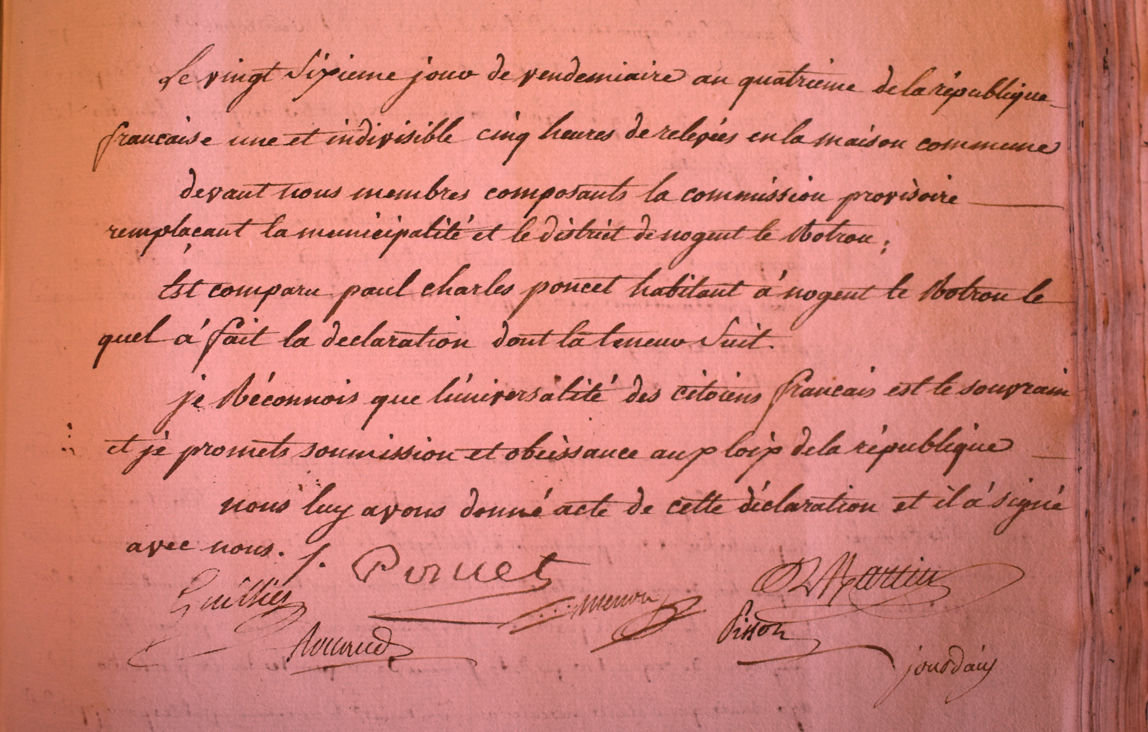 Le vingt Sixieme jour de vendemiaire an quatrieme de la république
francaise une et indivisible cinq heures de relevées en la maison commune
devant nous membres composants la commission provisoire
remplacant la municipalité et le district de nogent le Rotrou;
Est comparu paul charles poncet habitant á nogent le Rotrou le
quel á fait la declaration dont la teneur Suit.
je Réconnois que l'universalité des citoiens francais est le souvrain
et je promets soumission et obeissance aux loix de la république
nous luy avons donné acte de cette déclaration et il á signé
avec nous. Poncet
Martin
menou
Pisson
jourdain